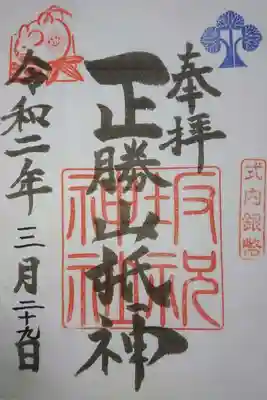 奉拝
式内銀幣
正勝山祇神
坂祝
神社
令和二年三月二十九日